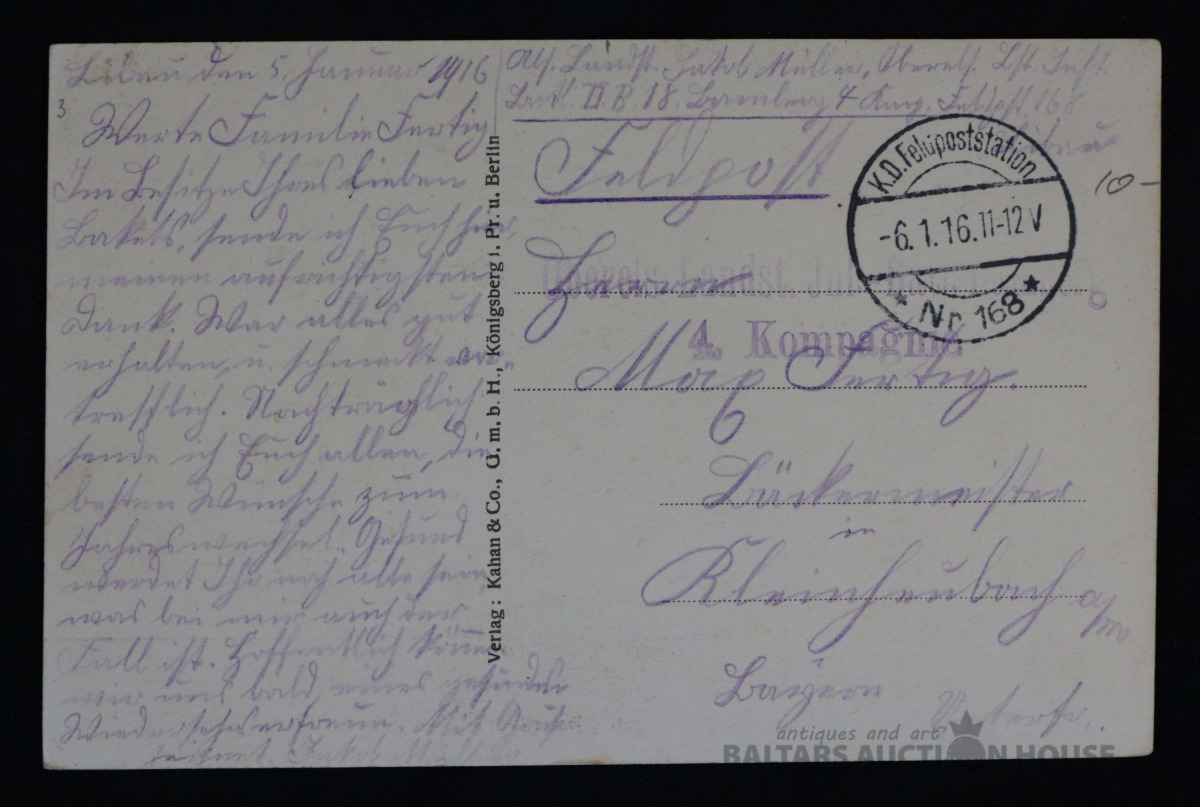 Libau den 5. Januar 1916
3
Werte Familie Fertig
Im Besitze Ihres lieben
Pakets, sende ich Euch hier,
meinen aufrichtigsten
Dank. War alles gut
erhalten, u. schmeckt vor-
trefflich. Nachträglich
sende ich Euch allen, die
besten Wünsche zum
Jahreswechsel. Gesund
werdet Ihr noch alle sein
was bei mir auch der
Fall ist. Hoffentlich können
wir uns bald eines gesunden
Wiedersehns erfreun. Mit Gruß
zeichnet Jakob Müller
Verlag: Kahan & Co., G. m. b. H., Königsberg i. Pr. u. Berlin
Abs. Landst. Jakob Müller, Oberels. Lst. Inft.
Batl. II B 18. Bamberg 4 Komp. Feldpst 168
Libau
Feldpost
K.D. Feldpoststation
-6.1.16.11-12V
* Nr 168 *
10-
Oberels. Landst. Inf. Bat. Bamberg
4. Kompagnie
Herrn
Max Fertig.
Bäckermeister
in
Kleinheubach a/M
Bayern Unterfr.
antiques and art
BALTARS AUCTION HOUSE